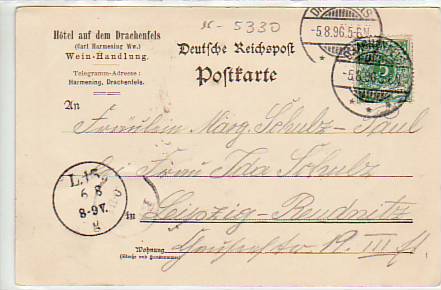 x-5330
Hôtel auf dem Drachenfels
(Carl Harmening Ww.)
Wein-Handlung.
Telegramm-Adresse:
Harmening, Drachenfels.
Deutsche Reichspost
Postkarte
-5.8.96.5-6N.
-5.8.96
An
Fräulein Marg. Schulz-Paul
bei Frau Ida Schulz
in Leipzig-Reudnitz
19 III
L.13
6 8
8-9V.
Wohnung
(Straße und Hausnummer)